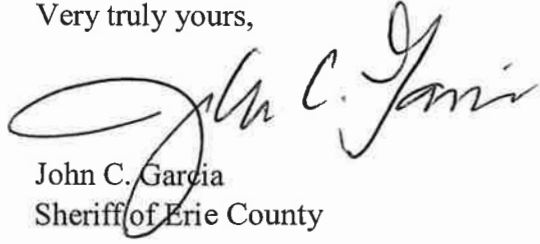 Very truly yours,
John C. Garcia
John C. Garcia
Sheriff of Erie County